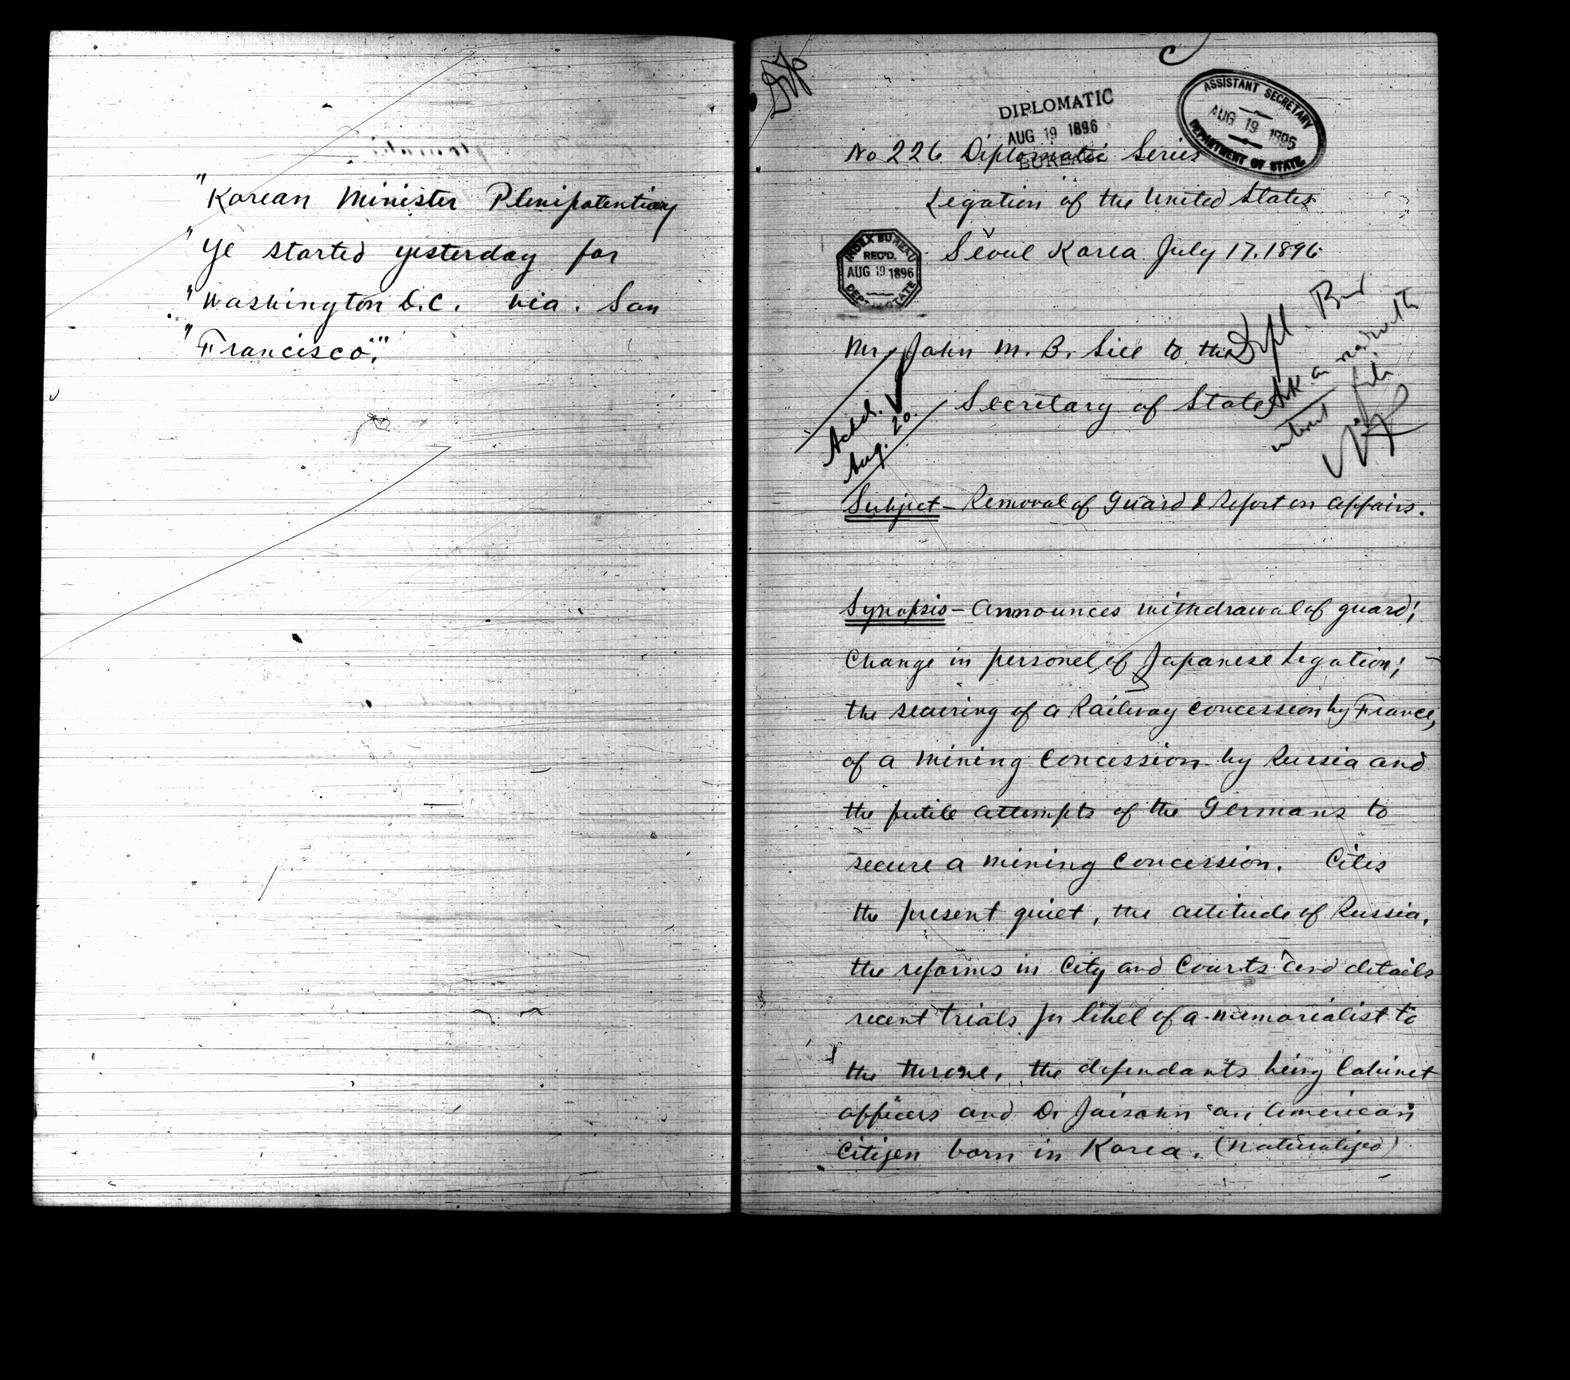 "Korean Minister Plenipotentiary
"Ye started yesterday for
"Washington D.C. via. San
"Francisco"."
DIPLOMATIC
AUG 19 1896
BUREAU
ASSISTANT SECRETARY
AUG 19 1896
DEPARTMENT OF STATE
No 226 Diplomatic Series
Legation of the United States
Seoul Korea July 17. 1896
INDEX BUREAU
REC'D.
AUG 19 1896
DEPT. STATE
Mr. John M. B. Sill to the
Dipl. Bu
Secretary of State
Ackd.
Aug. 20.
Subject - Removal of Guard & Report on affairs.
Synopsis - Announces withdrawal of guard;
Change in personel of Japanese Legation;
the securing of a Railway concession by France,
of a mining concession by Russia and
the futile attempts of the Germans to
secure a mining concession. Cites
the present quiet, the attitude of Russia,
the reforms in City and Courts and details
recent trials for libel of a memorialist to
the throne, the defendants being Cabinet
officers and Dr Jaisohn an American
Citizen born in Korea. (naturalized)